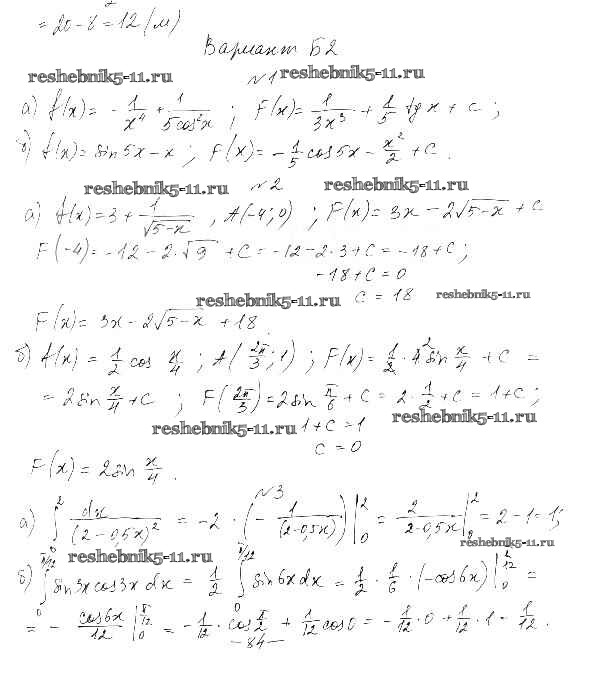 = 20 - 8 = 12 (м)
Вариант Б2
reshebnik5-11.ru №1 reshebnik5-11.ru
а) f(x) = - 1/x⁴ + 1/(5cos²x) ; F(x) = 1/(3x³) + 1/5 tg x + c ;
б) f(x) = sin5x - x ; F(x) = - 1/5 cos5x - x²/2 + c .
reshebnik5-11.ru №2 reshebnik5-11.ru
а) f(x) = 3 + 1/√(5-x) , A(-4; 0) ; F(x) = 3x - 2√(5-x) + c
F(-4) = -12 - 2·√9 + c = -12 - 2·3 + c = -18 + c ;
-18 + c = 0
reshebnik5-11.ru c = 18 reshebnik5-11.ru
F(x) = 3x - 2√(5-x) + 18 .
б) f(x) = 1/2 cos x/4 ; A(2π/3 ; 1) ; F(x) = 1/2 · 4 sin x/4 + c =
= 2sin x/4 + c ; F(2π/3) = 2sin π/6 + c = 2 · 1/2 + c = 1 + c ;
reshebnik5-11.ru 1 + c = 1 reshebnik5-11.ru
c = 0
F(x) = 2sin x/4 .
№3
а) ∫₀² dx/(2 - 0,5x)² = -2 · (- 1/(2-0,5x)) |₀² = 2/(2-0,5x) |₀² = 2 - 1 = 1;
reshebnik5-11.ru reshebnik5-11.ru
б) ∫₀^(π/12) sin3x cos3x dx = 1/2 ∫₀^(π/12) sin6x dx = 1/2 · 1/6 · (-cos6x) |₀^(π/12) =
= - cos6x/12 |₀^(π/12) = - 1/12 · cos π/2 + 1/12 cos0 = - 1/12 · 0 + 1/12 · 1 = 1/12 .
-84-